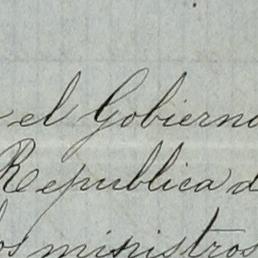 el Gobierno
Republica d
los ministros